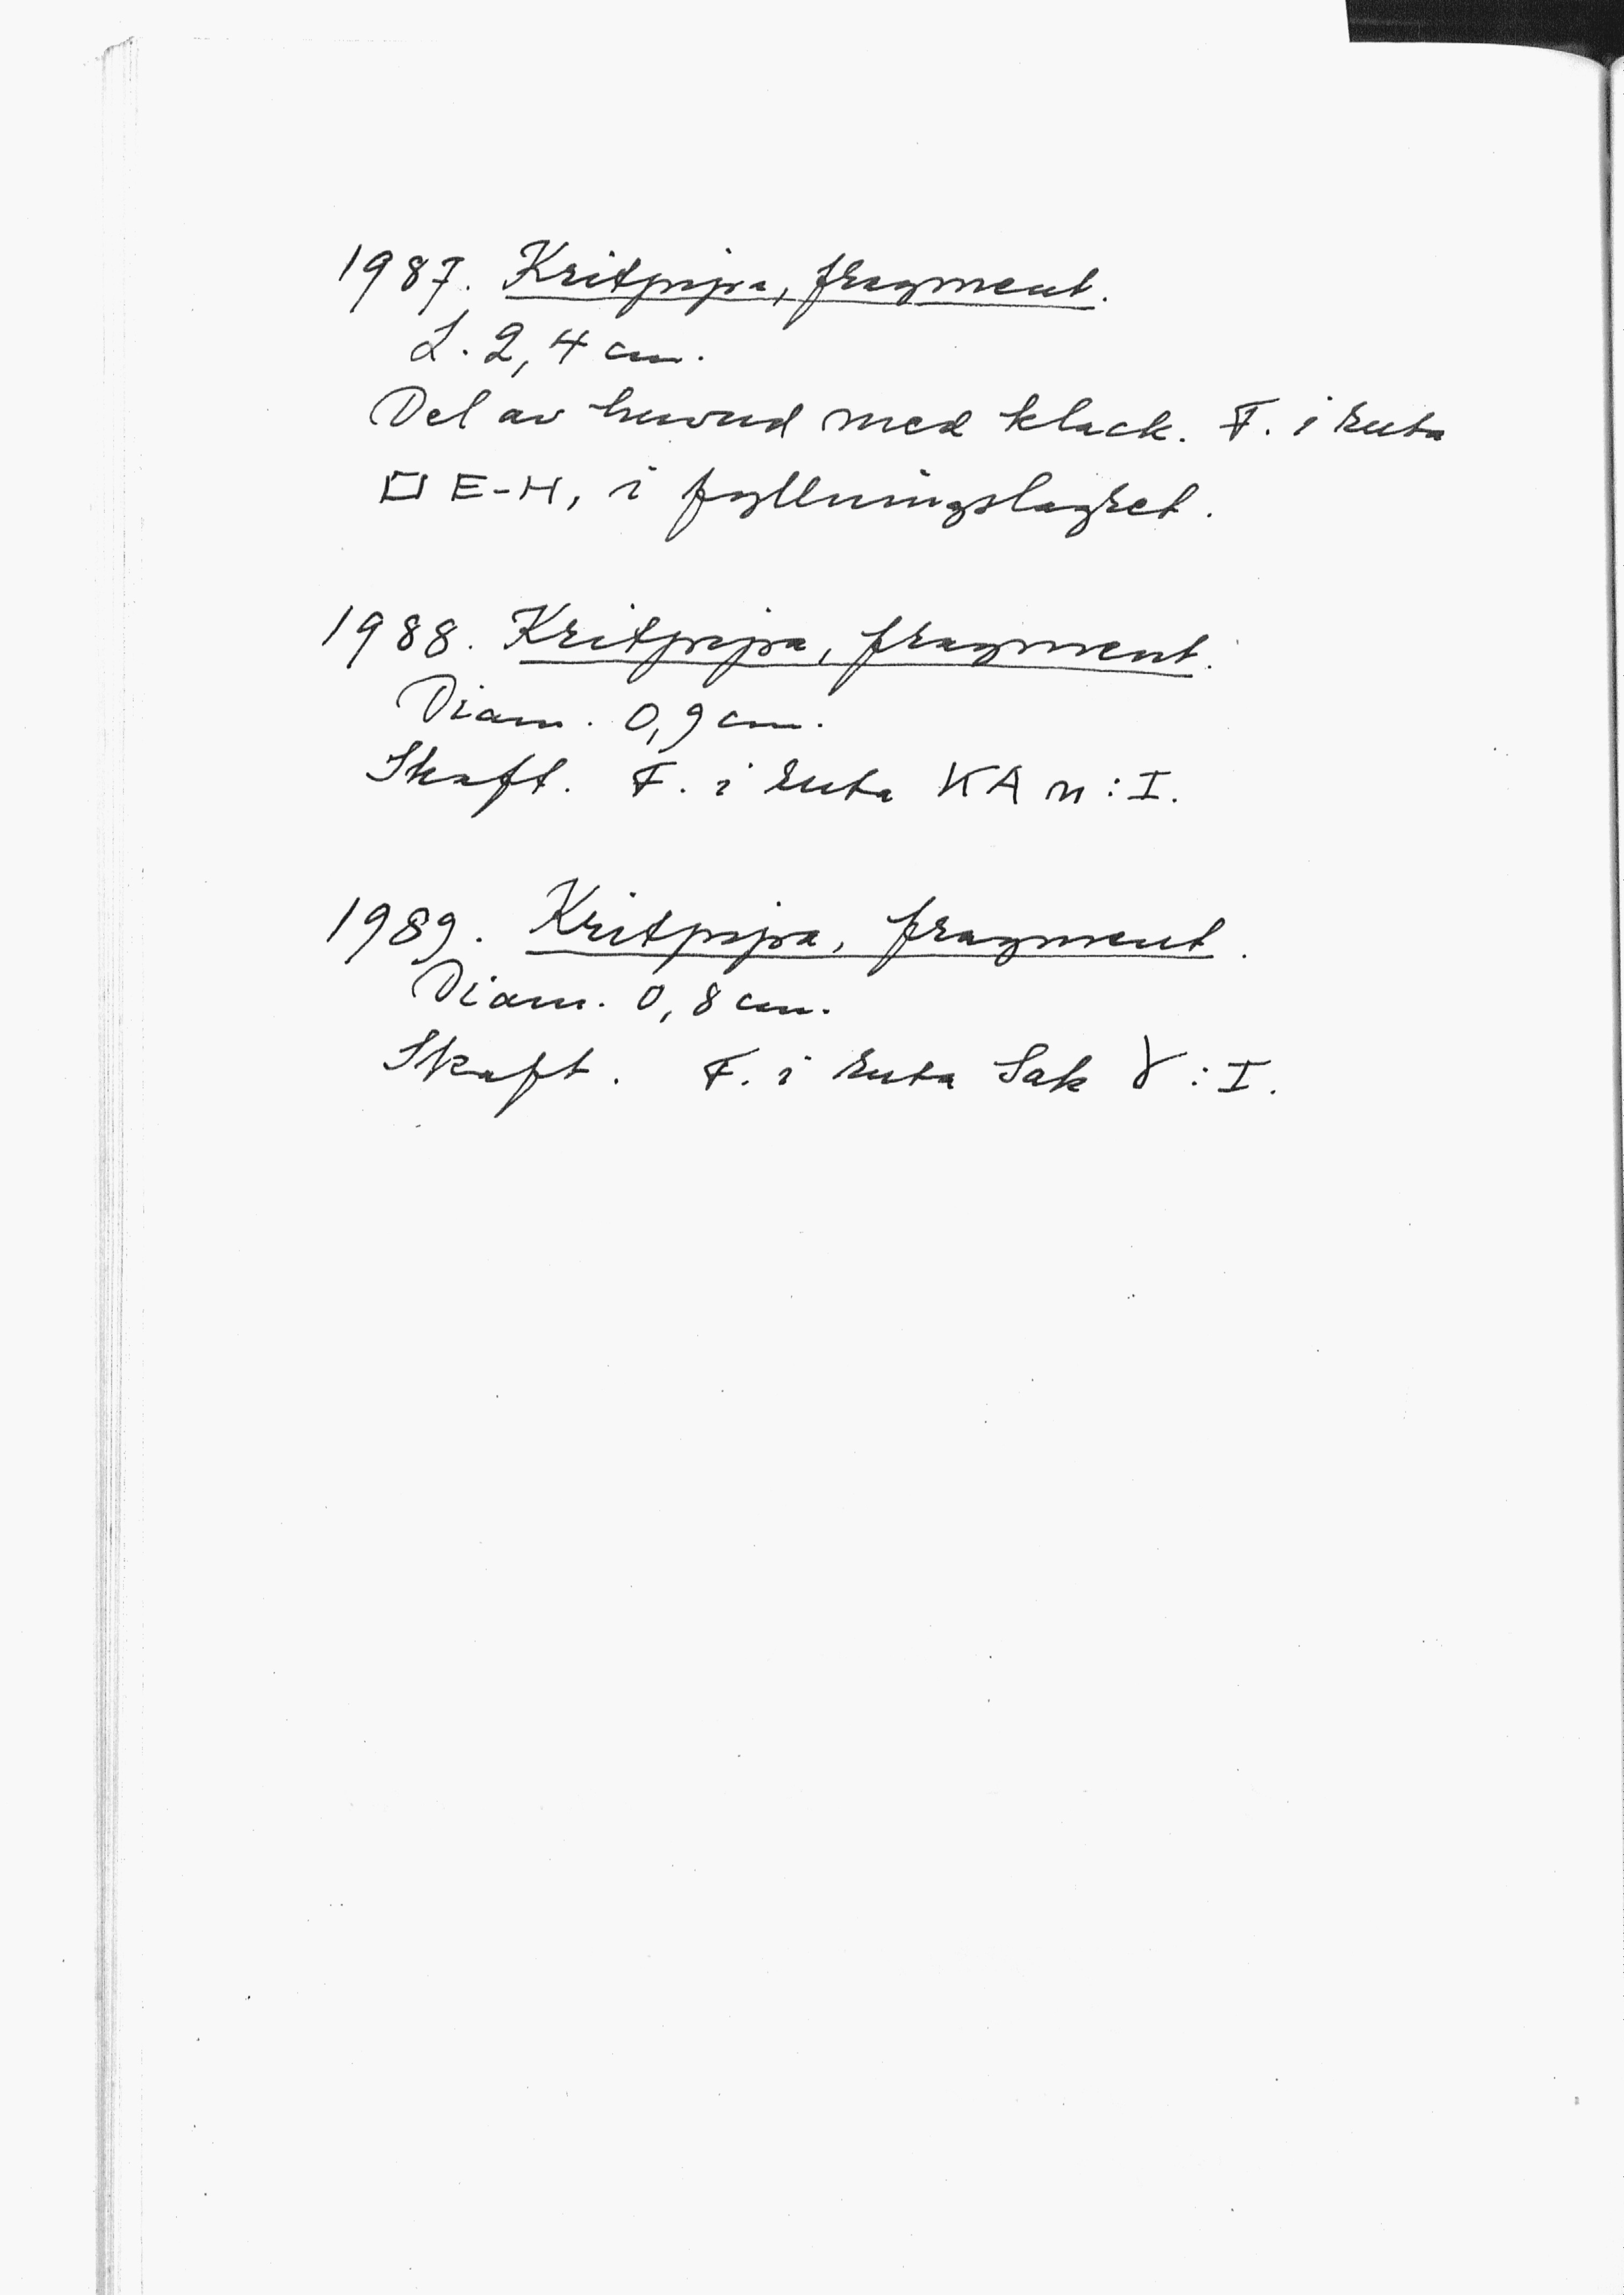 1987. Kritpipa, fragment.
L. 2,4 cm.
Del av huvud med klack. F. i ruta
□ E-H, i fyllningslagret.
1988. Kritpipa, fragment.
Diam. 0,9 cm.
Skaft. F. i ruta KA n:I.
1989. Kritpipa, fragment.
Diam. 0,8 cm.
Skaft. F. i ruta Sak γ:I.